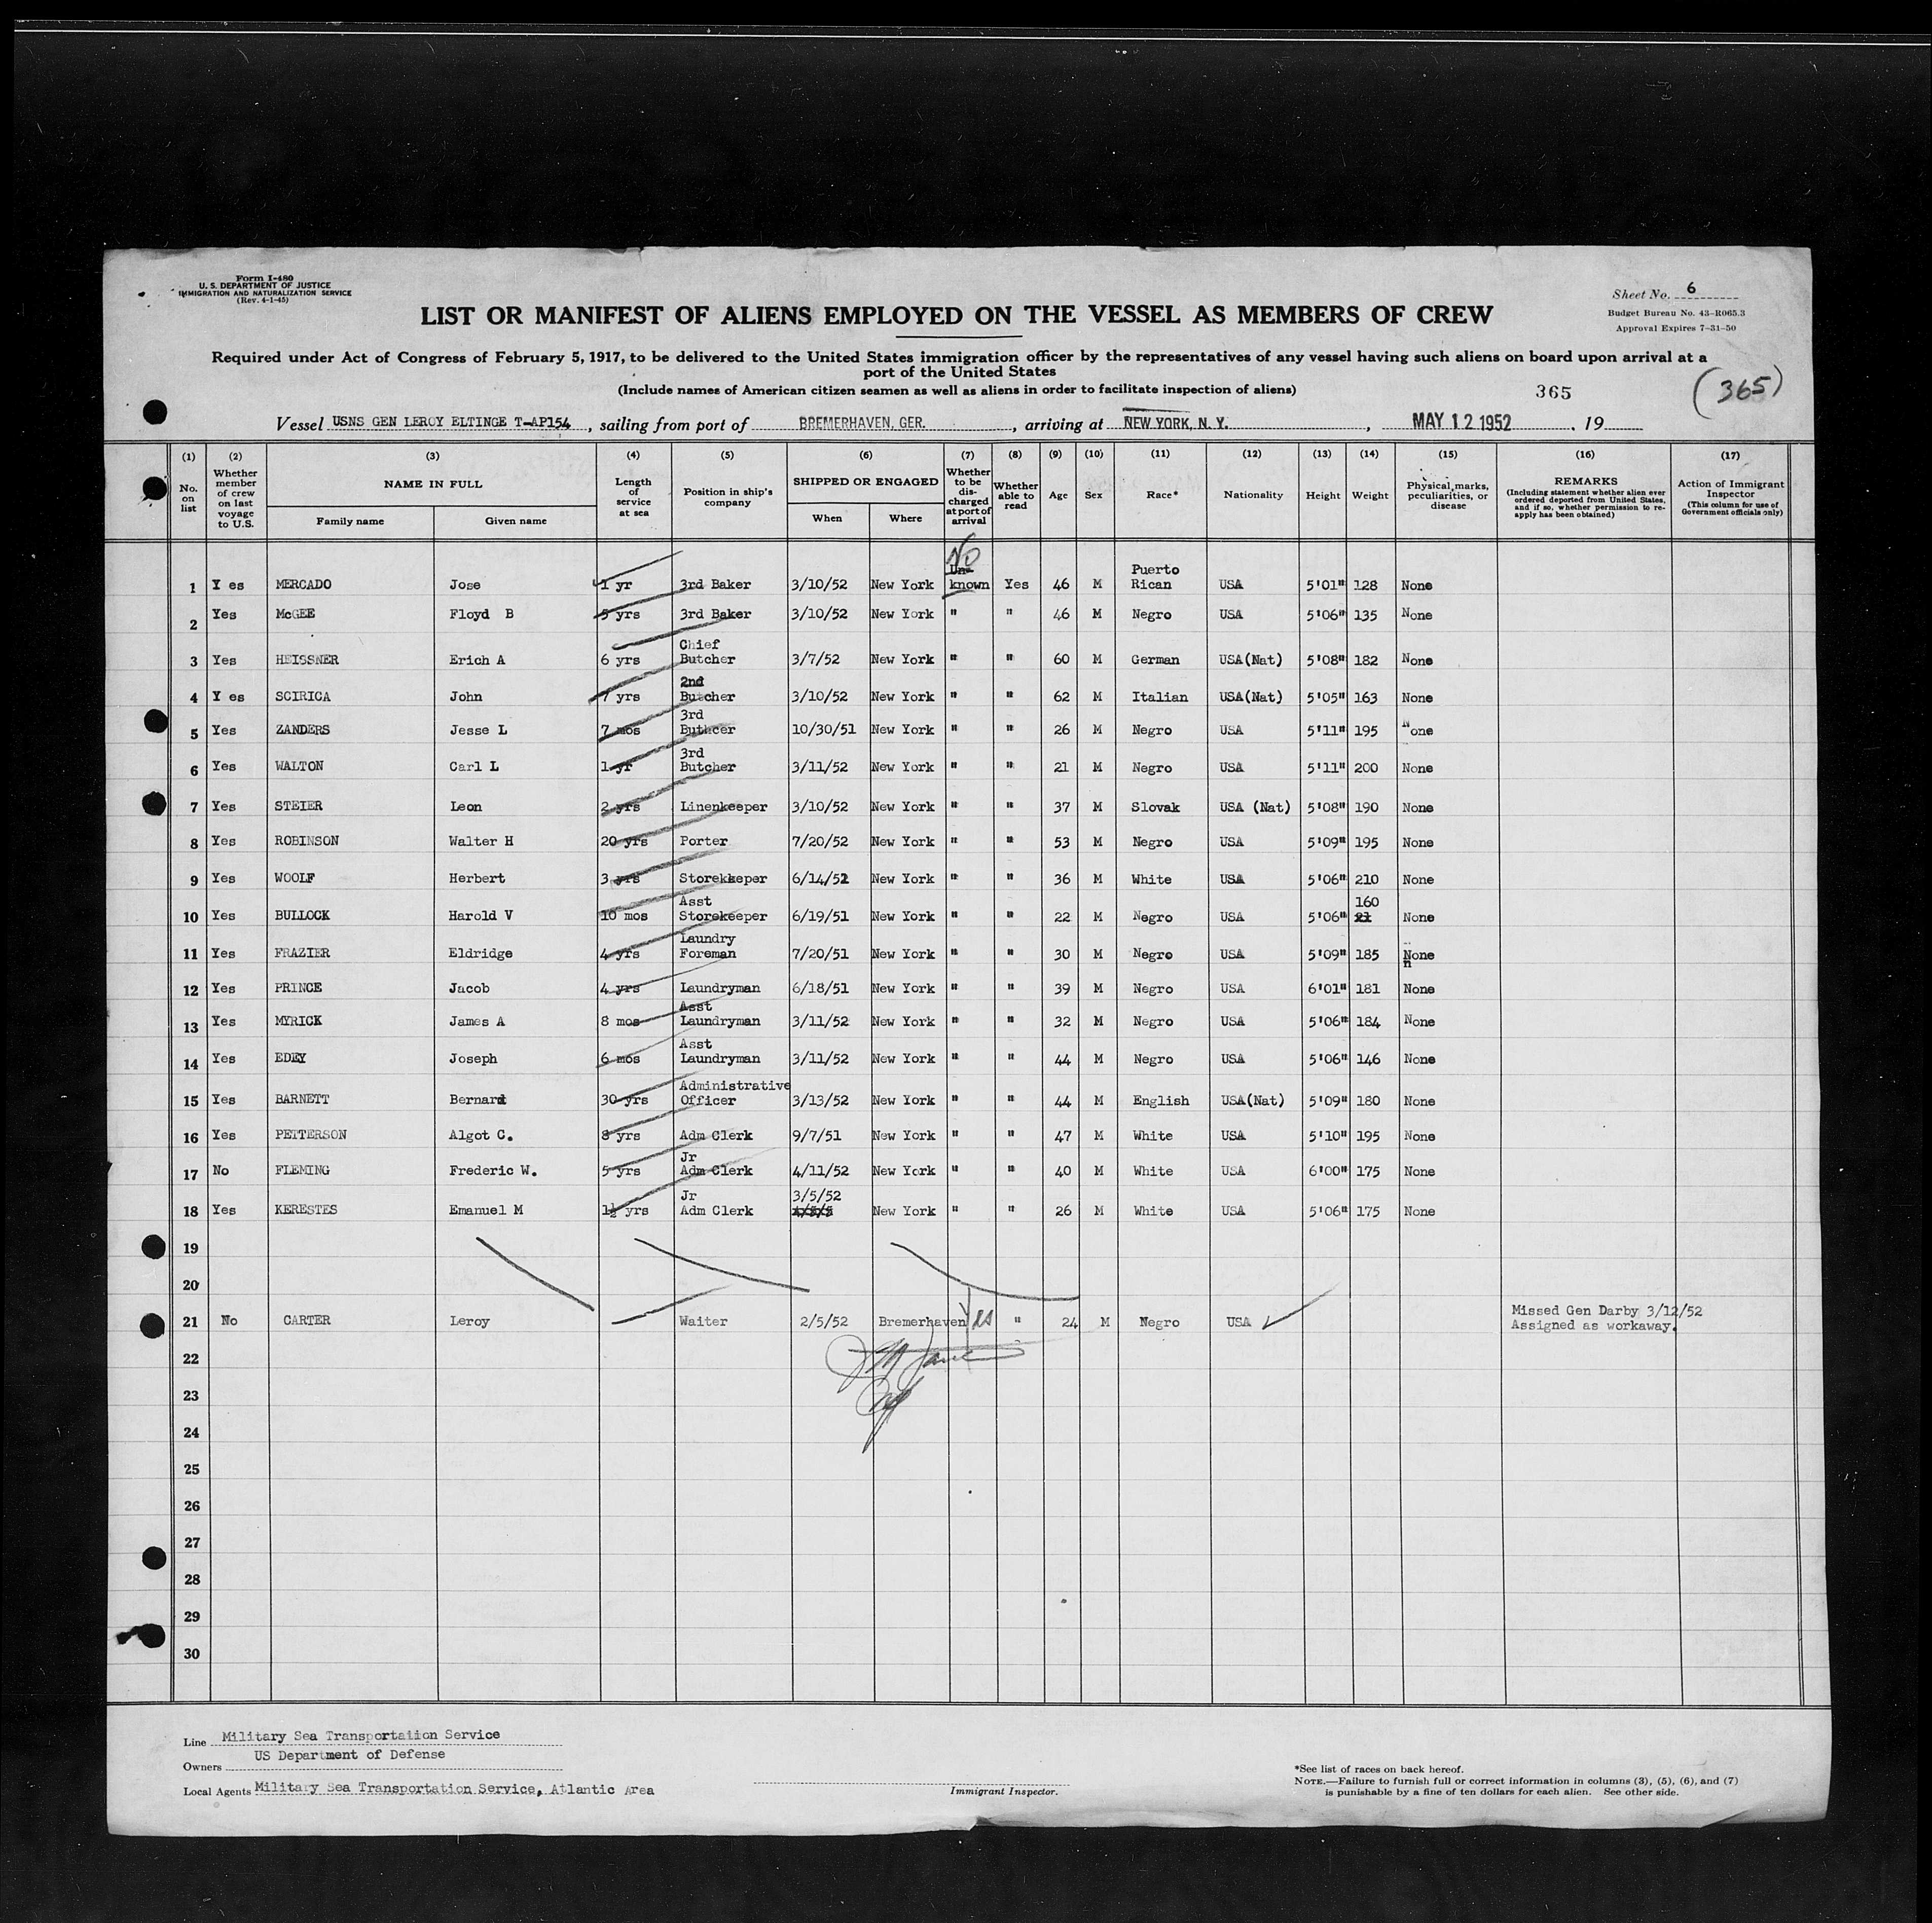 Form I-480
U. S. DEPARTMENT OF JUSTICE
IMMIGRATION AND NATURALIZATION SERVICE
(Rev. 4-1-45)
Sheet No. 6
Budget Bureau No. 43-R065.3
Approval Expires 7-31-50
LIST OR MANIFEST OF ALIENS EMPLOYED ON THE VESSEL AS MEMBERS OF CREW
Required under Act of Congress of February 5, 1917, to be delivered to the United States immigration officer by the representatives of any vessel having such aliens on board upon arrival at a
port of the United States
(Include names of American citizen seamen as well as aliens in order to facilitate inspection of aliens)
365 (365)
Vessel USNS GEN LEROY ELTINGE T-AP154, sailing from port of BREMERHAVEN, GER., arriving at NEW YORK, N. Y., MAY 12 1952, 19
(1) No. on list
(2) Whether member of crew on last voyage to U.S.
(3) NAME IN FULL Family name Given name
(4) Length of service at sea
(5) Position in ship's company
(6) SHIPPED OR ENGAGED When Where
(7) Whether to be discharged at port of arrival
(8) Whether able to read
(9) Age
(10) Sex
(11) Race*
(12) Nationality
(13) Height
(14) Weight
(15) Physical marks, peculiarities, or disease
(16) REMARKS (Including statement whether alien ever ordered deported from United States, and if so, whether permission to reapply has been obtained)
(17) Action of Immigrant Inspector (This column for use of Government officials only)
1 Y es MERCADO Jose 1 yr 3rd Baker 3/10/52 New York Unknown No Yes 46 M Puerto Rican USA 5'01" 128 None
2 Yes McGEE Floyd B 5 yrs 3rd Baker 3/10/52 New York " " 46 M Negro USA 5'06" 135 None
3 Yes HEISSNER Erich A 6 yrs Chief Butcher 3/7/52 New York " " 60 M German USA(Nat) 5'08" 182 None
4 Y es SCIRICA John 7 yrs 2nd Butcher 3/10/52 New York " " 62 M Italian USA(Nat) 5'05" 163 None
5 Yes ZANDERS Jesse L 7 mos 3rd Buthcer 10/30/51 New York " " 26 M Negro USA 5'11" 195 None
6 Yes WALTON Carl L 1 yr 3rd Butcher 3/11/52 New York " " 21 M Negro USA 5'11" 200 None
7 Yes STEIER Leon 2 yrs Linenkeeper 3/10/52 New York " " 37 M Slovak USA (Nat) 5'08" 190 None
8 Yes ROBINSON Walter H 20 yrs Porter 7/20/52 New York " " 53 M Negro USA 5'09" 195 None
9 Yes WOOLF Herbert 3 yrs Storekkeper 6/14/52 New York " " 36 M White USA 5'06" 210 None
10 Yes BULLOCK Harold V 10 mos Asst Storekeeper 6/19/51 New York " " 22 M Negro USA 5'06" 160 21 None
11 Yes FRAZIER Eldridge 4 yrs Laundry Foreman 7/20/51 New York " " 30 M Negro USA 5'09" 185 None
12 Yes PRINCE Jacob 4 yrs Laundryman 6/18/51 New York " " 39 M Negro USA 6'01" 181 None
13 Yes MYRICK James A 8 mos Asst Laundryman 3/11/52 New York " " 32 M Negro USA 5'06" 184 None
14 Yes EDEY Joseph 6 mos Asst Laundryman 3/11/52 New York " " 44 M Negro USA 5'06" 146 None
15 Yes BARNETT Bernard 30 yrs Administrative Officer 3/13/52 New York " " 44 M English USA(Nat) 5'09" 180 None
16 Yes PETTERSON Algot C. 8 yrs Adm Clerk 9/7/51 New York " " 47 M White USA 5'10" 195 None
17 No FLEMING Frederic W. 5 yrs Jr Adm Clerk 4/11/52 New York " " 40 M White USA 6'00" 175 None
18 Yes KERESTES Emanuel M 1½ yrs Jr Adm Clerk 3/5/52 New York " " 26 M White USA 5'06" 175 None
19
20
21 No CARTER Leroy Waiter 2/5/52 Bremerhaven Yes " 24 M Negro USA Missed Gen Darby 3/12/52 Assigned as workaway.
22
23
24
25
26
27
28
29
30
Line Military Sea Transportaiion Service
Owners US Department of Defense
Local Agents Military Sea Transportation Service, Atlantic Area
Immigrant Inspector.
*See list of races on back hereof.
NOTE.—Failure to furnish full or correct information in columns (3), (5), (6), and (7)
is punishable by a fine of ten dollars for each alien. See other side.